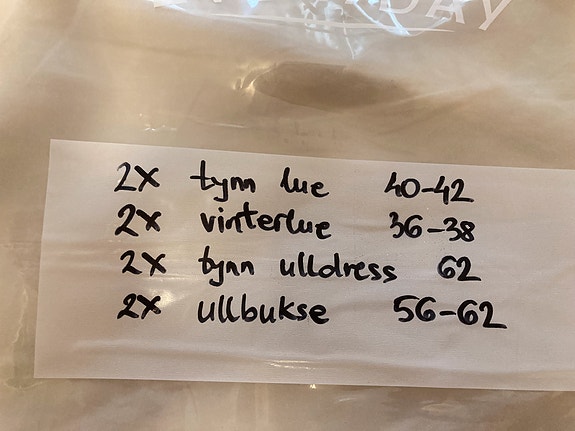 2x tynn lue 40-42
2x vinterlue 36-38
2x tynn ulldress 62
2x ullbukse 56-62